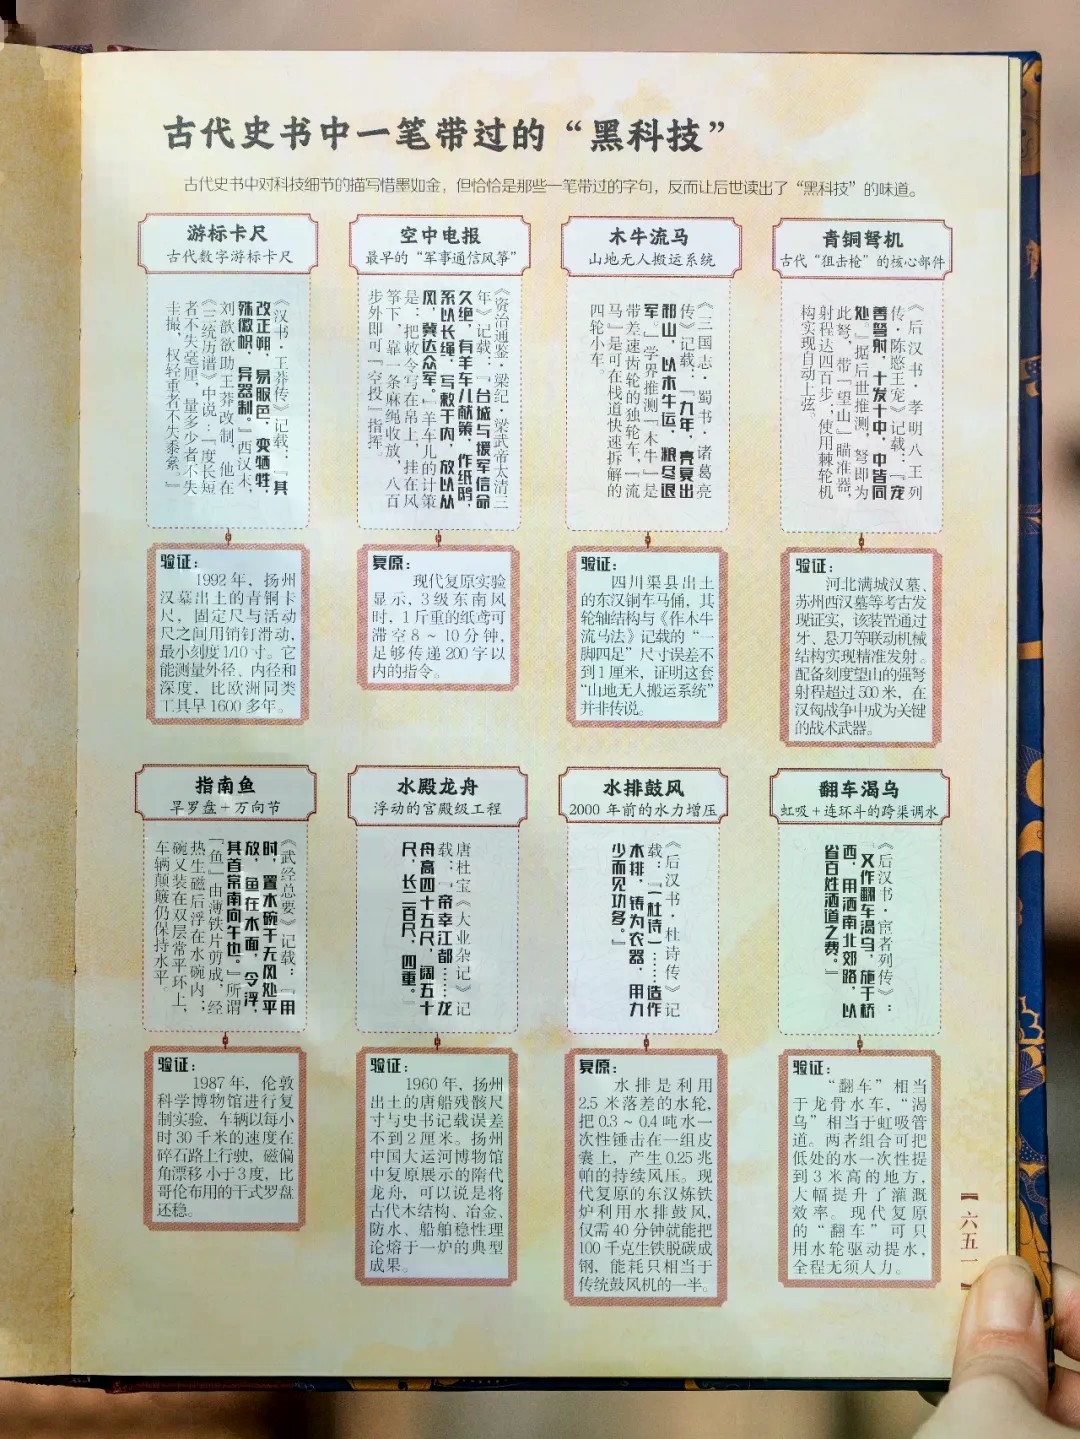 古代史书中一笔带过的“黑科技”
古代史书中对科技细节的描写惜墨如金，但恰恰是那些一笔带过的字句，反而让后世读出了“黑科技”的味道。
游标卡尺
古代数字游标卡尺
《汉书·王莽传》记载：『其
改正朔，易服色，变牺牲，
殊徽帜，异器制。』西汉末，
刘歆欲助王莽改制，他在
《三统历谱》中说：『度长短
者不失毫厘，量多少者不失
圭撮，权轻重者不失黍絫。』
验证：
1992年，扬州
汉墓出土的青铜卡
尺，固定尺与活动
尺之间用销钉滑动，
最小刻度1/10寸。它
能测量外径、内径和
深度，比欧洲同类
工具早1600多年。
空中电报
最早的“军事通信风筝”
《资治通鉴·梁纪·梁武帝太清三
年》记载：『台城与援军信命
久绝，有羊车儿献策，作纸鸱，
系以长绳，写敕于内，放以从
风，冀达众军。』羊车儿的计策
是：把敕令写在帛上，挂在风
筝下，靠一条麻绳收放，八百
步外即可『空投』指挥。
复原：
现代复原实验
显示，3级东南风
时，1斤重的纸鸢可
滞空8～10分钟，
足够传递200字以
内的指令。
木牛流马
山地无人搬运系统
《三国志·蜀书·诸葛亮
传》记载：『九年，亮复出
祁山，以木牛运，粮尽退
军。』学界推测『木牛』是
带差速齿轮的独轮车，『流
马』是可在栈道快速拆解的
四轮小车。
验证：
四川渠县出土
的东汉铜车马俑，其
轮轴结构与《作木牛
流马法》记载的“一
脚四足”尺寸误差不
到1厘米，证明这套
“山地无人搬运系统”
并非传说。
青铜弩机
古代“狙击枪”的核心部件
《后汉书·孝明八王列
传·陈愍王宠》记载：『宠
善弩射，十发十中，中皆同
处。』据后世推测，弩即为
此弩，带『望山』瞄准器，
射程达四百步；使用棘轮机
构实现自动上弦。
验证：
河北满城汉墓、
苏州西汉墓等考古发
现证实，该装置通过
牙、悬刀等联动机械
结构实现精准发射。
配备刻度望山的强弩
射程超过500米，在
汉匈战争中成为关键
的战术武器。
指南鱼
旱罗盘＋万向节
《武经总要》记载：『用
时，置水碗于无风处平
放，鱼在水面，令浮，
其首常南向午也。』所谓
『鱼』由薄铁片剪成，经
热生磁后浮在水碗内；
碗又装在双层常平环上，
车辆颠簸仍保持水平。
验证：
1987年，伦敦
科学博物馆进行复
制实验，车辆以每小
时30千米的速度在
碎石路上行驶，磁偏
角漂移小于3度，比
哥伦布用的干式罗盘
还稳。
水殿龙舟
浮动的宫殿级工程
唐杜宝《大业杂记》记
载：『帝幸江都……龙
舟高四十五尺，阔五十
尺，长二百尺，四重。』
验证：
1960年，扬州
出土的唐船残骸尺
寸与史书记载误差
不到2厘米。扬州
中国大运河博物馆
中复原展示的隋代
龙舟，可以说是将
古代木结构、冶金、
防水、船舶稳性理
论熔于一炉的典型
成果。
水排鼓风
2000年前的水力增压
《后汉书·杜诗传》记
载：『（杜诗）……造作
水排，铸为农器，用力
少而见功多。』
复原：
水排是利用
2.5米落差的水轮，
把0.3～0.4吨水一
次性锤击在一组皮
囊上，产生0.25兆
帕的持续风压。现
代复原的东汉炼铁
炉利用水排鼓风，
仅需40分钟就能把
100千克生铁脱碳成
钢，能耗只相当于
传统鼓风机的一半。
翻车渴乌
虹吸＋连环斗的跨渠调水
《后汉书·宦者列传》：
『又作翻车渴乌，施于桥
西，用洒南北郊路，以
省百姓洒道之费。』
验证：
“翻车”相当
于龙骨水车，“渴
乌”相当于虹吸管
道。两者组合可把
低处的水一次性提
到3米高的地方，
大幅提升了灌溉
效率。现代复原
的“翻车”可只
用水轮驱动提水，
全程无须人力。
六五一